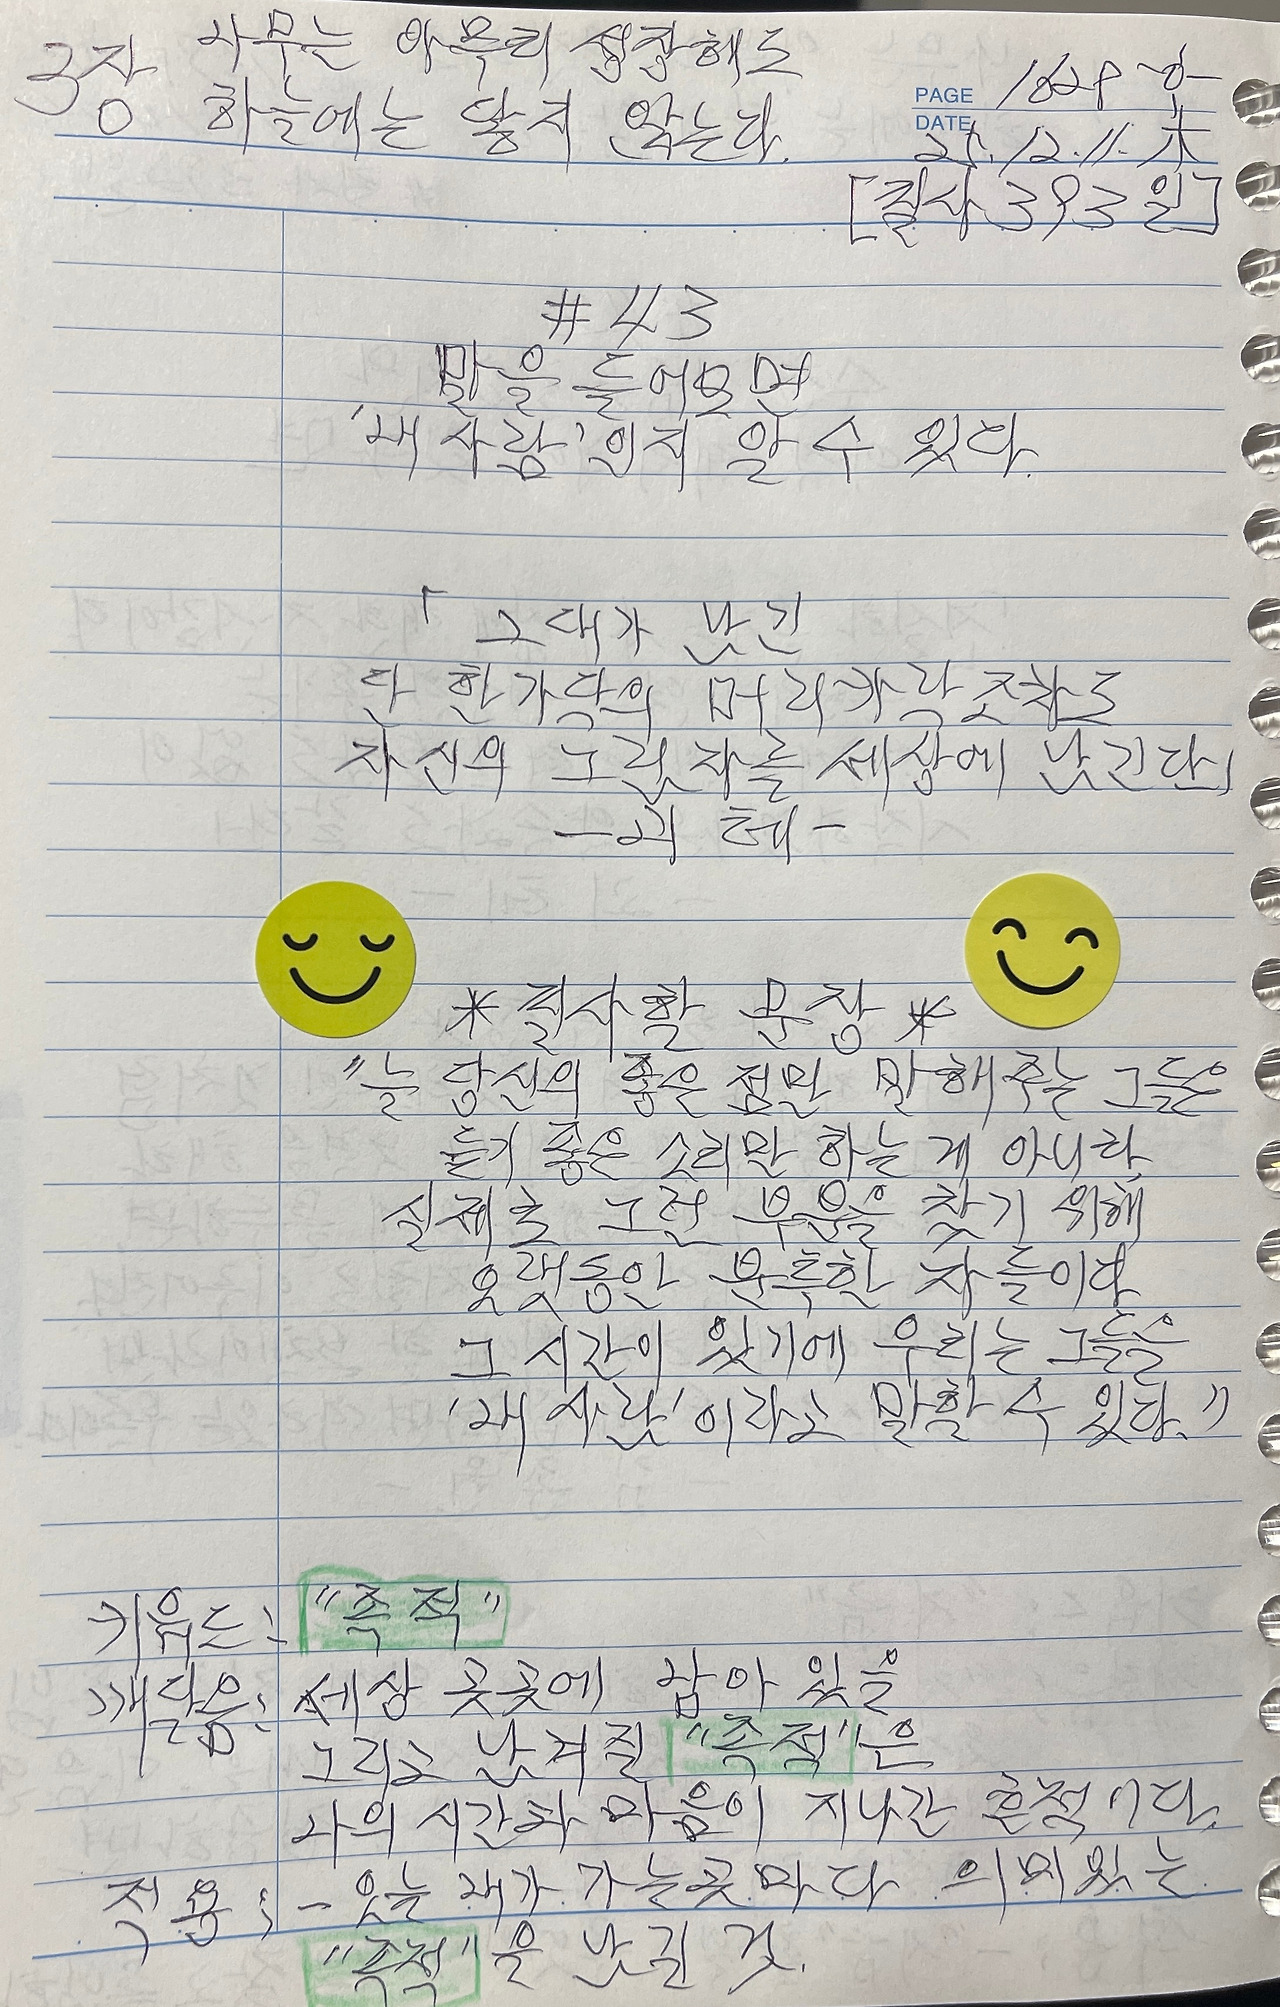 3장 나무는 아무리 성장해도
하늘에는 닿지 않는다.
PAGE
DATE 25.12.11.木
[필사 393일]
#43
말을 들어보면
'내 사람'인지 알 수 있다.
「그대가 남긴
단 한가닥의 머리카락조차도
자신의 그림자를 세상에 남긴다」
-괴테-
*필사할 문장*
"늘 당신의 좋은 점만 말해주는 그들은
듣기 좋은 소리만 하는 게 아니라,
실제로 그런 부분을 찾기 위해
오랫동안 분투한 자들이다
그 시간이 있기에 우리는 그들을
'내 사람'이라고 말할 수 있다."
키워드: "족적"
깨달음: 세상 곳곳에 남아 있을
그리고 남겨질 "족적"은
나의 시간과 마음이 지나간 흔적이다.
적용: - 오늘 내가 가는곳마다 의미있는
"족적"을 남길 것.